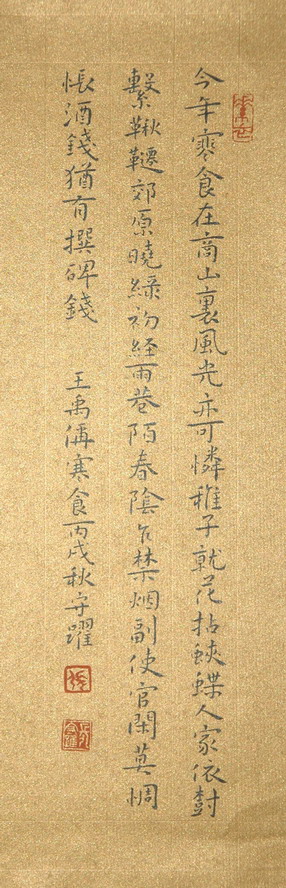 今年寒食在商山裏風光亦可憐稚子就花拈蛺蝶人家依樹
繫鞦韆郊原曉綠初經雨巷陌春陰乍禁烟副使官閑莫惆
悵酒錢猶有撰碑錢 王禹偁寒食丙戌秋守躍